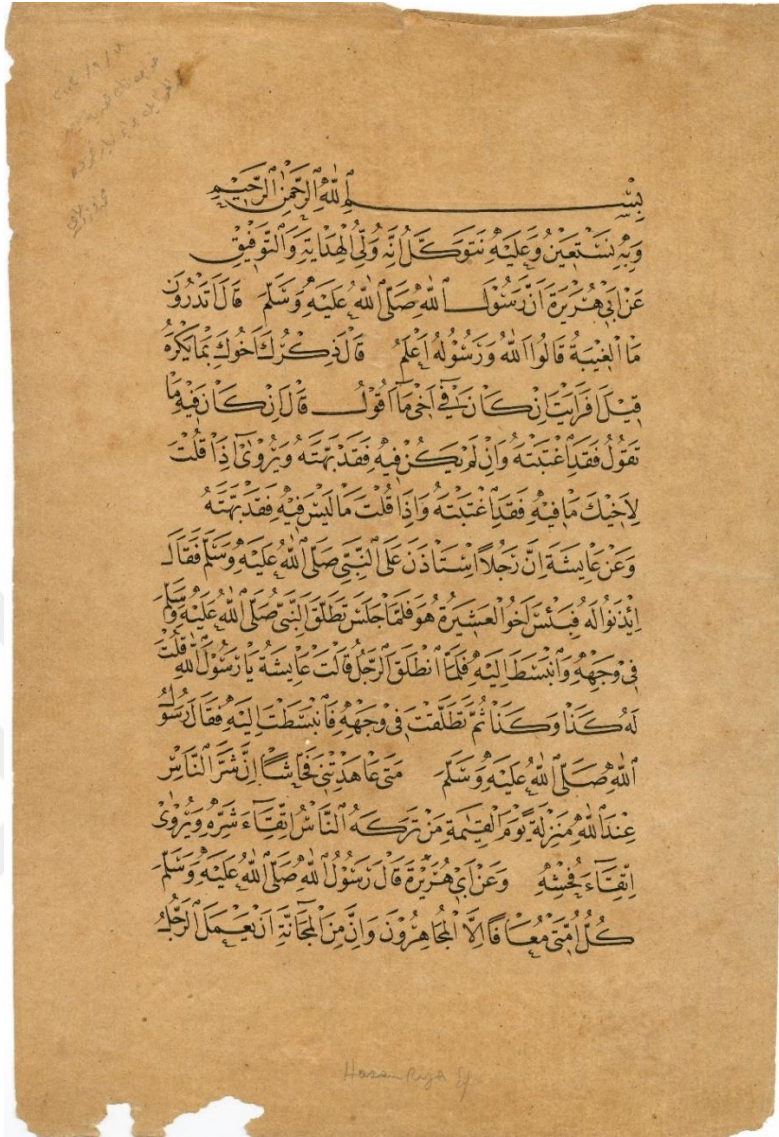 بِسْمِ اللّٰهِ الرَّحْمٰنِ الرَّحِيْمِ
وَبِهٖ نَسْتَعِيْنُ وَعَلَيْهِ نَتَوَكَّلُ اِنَّهُ وَلِيُّ الْهِدَايَةِ وَالتَّوْفِيْقِ
عَنْ اَبِيْ هُرَيْرَةَ اَنَّ رَسُوْلَ اللّٰهِ صَلَّى اللّٰهُ عَلَيْهِ وَسَلَّمَ قَالَ اَتَدْرُوْنَ
مَا الْغِيْبَةُ قَالُوْا اَللّٰهُ وَرَسُوْلُهُ اَعْلَمُ قَالَ ذِكْرُكَ اَخُوْكَ بِمَا يَكْرَهُ
قِيْلَ اَفَرَاَيْتَ اِنْ كَانَ فِيْ اَخِيْ مَا اَقُوْلُ قَالَ اِنْ كَانَ فِيْهِ مَا
تَقُوْلُ فَقَدِ اغْتَبْتَهُ وَاِنْ لَمْ يَكُنْ فِيْهِ فَقَدْ بَهَتَّهُ وَيُرْوٰى اِذَا قُلْتَ
لِاَخِيْكَ مَا فِيْهِ فَقَدِ اغْتَبْتَهُ وَاِذَا قُلْتَ مَا لَيْسَ فِيْهِ فَقَدْ بَهَتَّهُ
وَعَنْ عَايِشَةَ اِنَّ رَجُلًا اِسْتَاذَنَ عَلَى النَّبِيِّ صَلَّى اللّٰهُ عَلَيْهِ وَسَلَّمَ فَقَالَ
اِيْذَنُوْا لَهُ فَبِئْسَ اَخُو الْعَشِيْرَةِ هُوَ فَلَمَّا جَلَسَ تَطَلَّقَ النَّبِيُّ صَلَّى اللّٰهُ عَلَيْهِ وَسَلَّمَ
فِيْ وَجْهِهٖ وَانْبَسَطَ اِلَيْهِ فَلَمَّا انْطَلَقَ الرَّجُلُ قَالَتْ عَايِشَةُ يَا رَسُوْلَ اللّٰهِ قُلْتَ
لَهُ كَذَا وَكَذَا ثُمَّ تَطَلَّقْتَ فِيْ وَجْهِهٖ فَانْبَسَطْتَ اِلَيْهِ فَقَالَ رَسُوْلُ
اللّٰهِ صَلَّى اللّٰهُ عَلَيْهِ وَسَلَّمَ مَتٰى عَاهَدْتِنِيْ فَحَّاشًا اِنَّ شَرَّ النَّاسِ
عِنْدَ اللّٰهِ مَنْزِلَةً يَوْمَ الْقِيٰمَةِ مَنْ تَرَكَهُ النَّاسُ اِتِّقَآءَ شَرِّهٖ وَيُرْوٰى
اِتِّقَآءَ فُحْشِهٖ وَعَنْ اَبِيْ هُرَيْرَةَ قَالَ رَسُوْلُ اللّٰهِ صَلَّى اللّٰهُ عَلَيْهِ وَسَلَّمَ
كُلُّ اُمَّتِيْ مُعَافًا اِلَّا الْمُجَاهِرُوْنَ وَاِنَّ مِنَ الْمَجَانَّةِ اَنْ يَعْمَلَ الرَّجُلُ
Hasan Rıza Ef